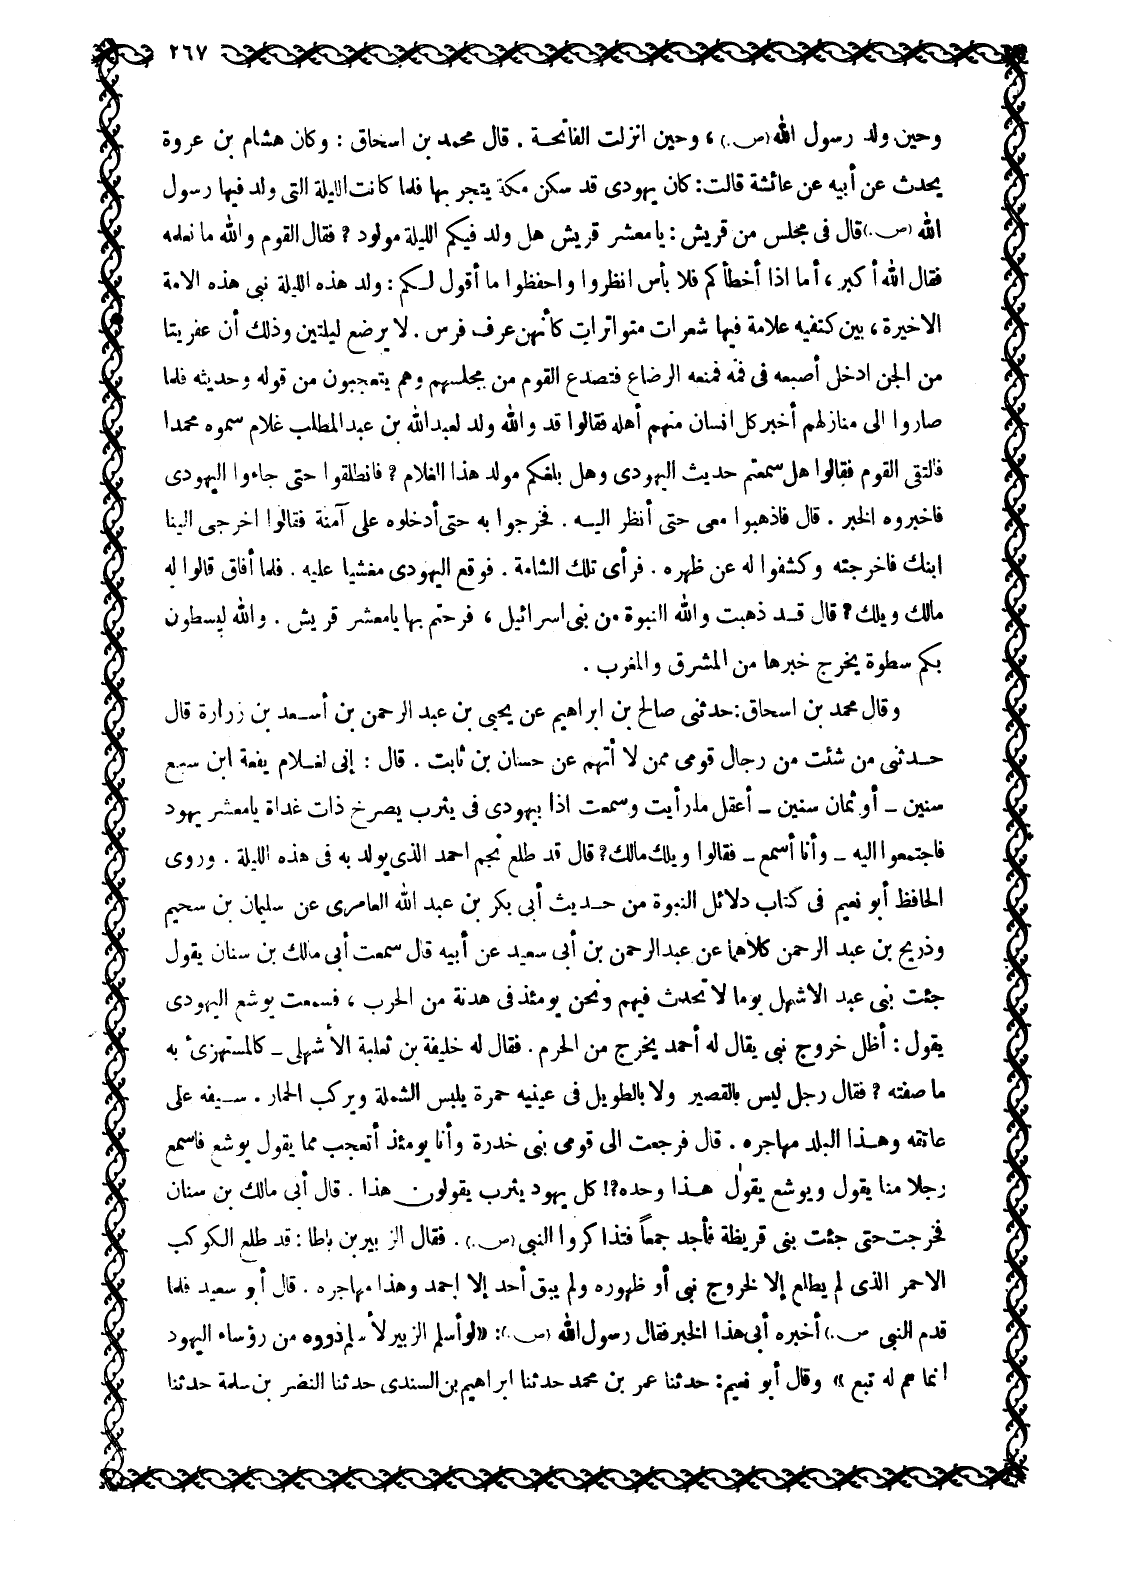 ٢٦٧
وحين ولد رسول الله (ص.) ، وحين انزلت الفاتحـة . قال محمد بن اسحاق : وكان هشام بن عروة
يحدث عن أبيه عن عائشة قالت: كان يهودى قد سكن مكة يتجر بها فلما كانت الليلة التى ولد فيها رسول
الله (ص.) قال فى مجلس من قريش : يا معشر قريش هل ولد فيكم الليلة مولود ? فقال القوم والله ما نعلمه
فقال الله أكبر ، أما اذا أخطأكم فلا بأس انظروا واحفظوا ما أقول لكم : ولد هذه الليلة نبى هذه الامة
الاخيرة ، بين كتفيه علامة فيها شعرات متواترات كأنهن عرف فرس . لا يرضع ليلتين وذلك أن عفريتا
من الجن ادخل أصبعه فى فمه فمنعه الرضاع فتصدع القوم من مجلسهم وهم يتعجبون من قوله وحديثه فلما
صاروا الى منازلهم أخبر كل انسان منهم أهله فقالوا قد والله ولد لعبد الله بن عبد المطلب غلام سموه محمدا
فالتقى القوم فقالوا هل سمعتم حديث اليهودى وهل بلغكم مولد هذا الغلام ? فانطلقوا حتى جاءوا اليهودى
فاخبروه الخبر . قال فاذهبوا معى حتى أنظر اليـه . فخرجوا به حتى أدخلوه على آمنة فقالوا اخرجى الينا
ابنك فاخرجته وكشفوا له عن ظهره . فرأى تلك الشامة . فوقع اليهودى مغشيا عليه . فلما أفاق قالوا له
مالك ويلك ? قال قـد ذهبت والله النبوة من بنى اسرائيل ، فرحتم بها يا معشر قريش . والله ليسطون
بكم سطوة يخرج خبرها من المشرق والمغرب .
وقال محمد بن اسحاق: حدثنى صالح بن ابراهيم عن يحيى بن عبد الرحمن بن أسـعد بن زرارة قال
حـدثنى من شئت من رجال قومى ممن لا أتهم عن حسان بن ثابت . قال : إنى لغـلام يفعة ابن سبع
سنين ــ أو ثمان سنين ــ أعقل ما رأيت وسمعت اذا بيهودى فى يثرب يصرخ ذات غداة يا معشر يهود
فاجتمعوا اليه ــ وأنا أسمع ــ فقالوا ويلك مالك? قال قد طلع نجم احمد الذى يولد به فى هذه الليلة . وروى
الحافظ أبو نعيم فى كتاب دلائل النبوة من حـديث أبى بكر بن عبد الله العامرى عن سليمان بن سحيم
وذريح بن عبد الرحمن كلاهما عن عبد الرحمن بن أبى سعيد عن أبيه قال سمعت أبى مالك بن سنان يقول
جئت بنى عبد الاشهل يوما لا تحدث فيهم ونحن يومئذ فى هدنة من الحرب ، فسمعت يوشع اليهودى
يقول : أظل خروج نبى يقال له أحمد يخرج من الحرم . فقال له خليفة بن ثعلبة الأشهلى ــ كالمستهزئ به
ما صفته ? فقال رجل ليس بالقصير ولا بالطويل فى عينيه حمرة يلبس الشملة ويركب الحمار . سـيفه على
عاتقه وهـذا البلد مهاجره . قال فرجعت الى قومى بنى خدرة وأنا يومئذ أتعجب مما يقول يوشع فاسمع
رجلا منا يقول ويوشع يقول هـذا وحده?! كل يهود يثرب يقولون هذا . قال أبى مالك بن سنان
فخرجت حتى جئت بنى قريظة فأجد جمعاً فتذاكروا النبى (ص.) . فقال الزبير بن باطا : قد طلع الكوكب
الاحمر الذى لم يطلع إلا لخروج نبى أو ظهوره ولم يبق أحد إلا احمد وهذا مهاجره . قال أبو سعيد فلما
قدم النبى ص.) أخبره أبى هذا الخبر فقال رسول الله (ص.): «لو أسلم الزبير لأسلم ذووه من رؤساء اليهود
انما هم له تبع » وقال أبو نعيم: حدثنا عمر بن محمد حدثنا ابراهيم بن السندى حدثنا النضر بن سلمة حدثنا